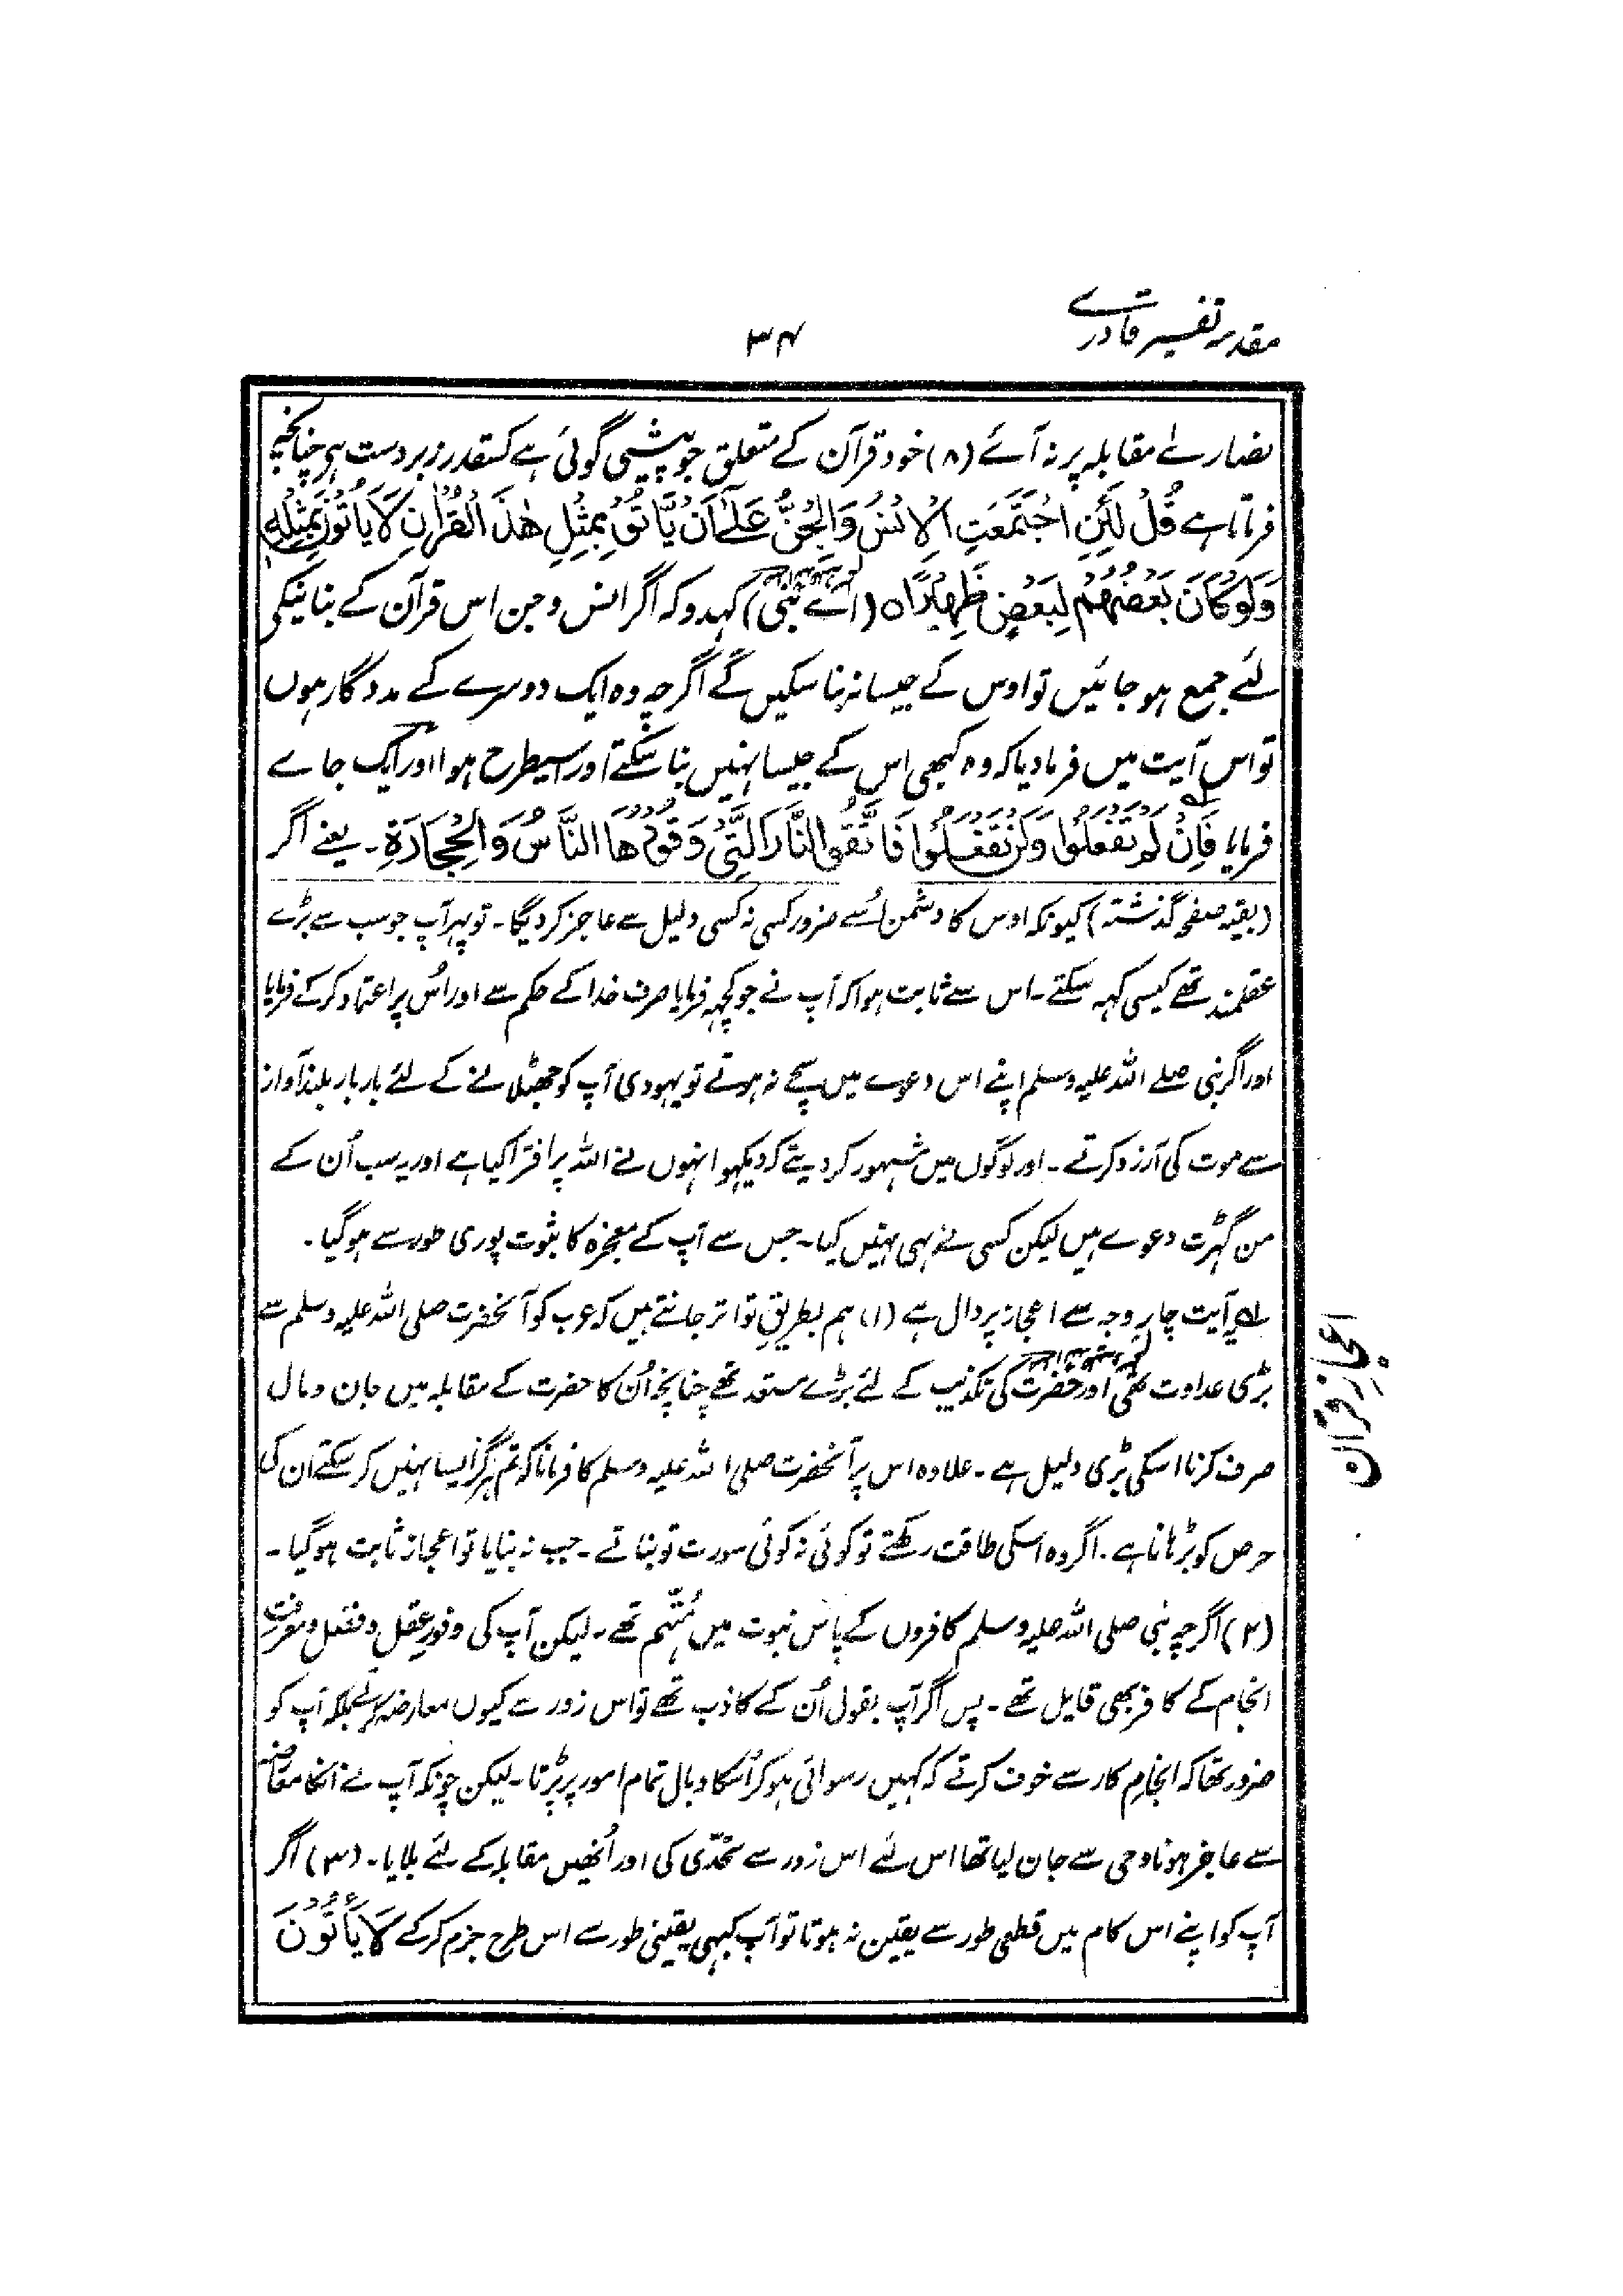 مقدمہ تفسیر قادرے
۳۴
نصارےٰ مقابلہ پر نہ آئے (۸) خود قرآن کے متعلق جو پیشی گوئی ہے کسقدر زبردست ہی چنانچہ
فرماتا ہے قُلْ لَئِنِ اجْتَمَعَتِ الْاِنْسُ وَالْجِنُّ عَلٰٓے اَنْ یَّاْتُوْا بِمِثْلِ ھٰذَا الْقُرْاٰنِ لَا یَاْتُوْنَ بِمِثْلِہٖ
وَلَوْ کَانَ بَعْضُھُمْ لِبَعْضٍ ظَھِیْرًا ہ (اے نبی) کہدو کہ اگر انس و جن اس قرآن کے بنانیکی
لئے جمع ہو جائیں تو اوس کے جیسا نہ بنا سکیں گے اگرچہ وہ ایک دوسرے کے مددگار ہوں
تو اس آیت میں فرمادیا کہ وہ کبھی اس کے جیسا نہیں بنا سکتے اور اسیطرح ہوا اور ایک جاے
فرمایا فَاِنْ لَمْ تَفْعَلُوْا وَلَنْ تَفْعَلُوْا فَاتَّقُوا النَّارَ الَّتِیْ وَقُوْدُھَا النَّاسُ وَالْحِجَارَۃِ ۔ یعنے اگر
(بقیہ صفحہ گذشتہ) کیونکہ اوس کا دشمن اُسے ضرور کسی نہ کسی دلیل سے عاجز کر دیگا ۔ تو پہر آپ جو سب سے بڑے
عقلمند تھے کیسی کہہ سکتے ۔ اس سے ثابت ہوا کہ آپ نے جو کچہہ فرمایا صرف خدا کے حکم سے اور اُس پر اعتماد کر کے فرمایا
اور اگر نبی صلے اللہ علیہ وسلم اپنے اس دعوے میں سچے نہ ہوتے تو یہودی آپ کو جھٹلانے کے لئے بار بار بلند آواز
سے موت کی آرزو کرتے ۔ اور لوگوں میں مشہور کر دیتے کہ دیکہو انہوں نے اللہ پر افترا کیا ہے اور یہ سب اُن کے
من گہڑت دعوے ہیں لیکن کسی نے بہی نہیں کیا ۔ جس سے آپ کے معجزہ کا ثبوت پوری طور سے ہو گیا ۔
یہ آیت چار وجہ سے اعجاز پر دال ہے (۱) ہم بطریقِ تواتر جانتے ہیں کہ عرب کو آنحضرت صلی اللہ علیہ وسلم سے
بڑی عداوت تھی اور حضرت کی تکذیب کے لئے بڑے مستعد تھے چنانچہ اُن کا حضرت کے مقابلہ میں جان و مال
صرف کرنا اسکی بڑی دلیل ہے ۔ علاوہ اس پر آنحضرت صلی اللہ علیہ وسلم کا فرمانا کہ تم ہرگز ایسا نہیں کر سکتے ان کی
حرص کو بڑہانا ہے ۔ اگر وہ اسکی طاقت رکھتے تو کوئی نہ کوئی سورت تو بناتے ۔ جب نہ بنایا تو اعجاز ثابت ہو گیا ۔
(۲) اگرچہ نبی صلی اللہ علیہ وسلم کافروں کے پاس نبوت میں مُتَّہم تھے ۔ لیکن آپ کی وفورِ عقل و فضل و معرفتِ
انجام کے کافر بھی قایل تھے ۔ پس اگر آپ بقول اُن کے کاذب تھے تو اس زور سے کیوں معارضہ کرتے بلکہ آپ کو
ضرور تھا کہ انجامِ کار سے خوف کرتے کہ کہیں رسوائی ہو کر اُسکا وبال تمام امور پر پڑتا ۔ لیکن چونکہ آپ نے انکا معارضہ
سے عاجز ہونا وحی سے جان لیا تھا اس لئے اس زور سے تحدّی کی اور اُنھیں مقابلہ کے لئے بلایا ۔ (۳) اگر
آپ کو اپنے اس کام میں قطعی طور سے یقین نہ ہوتا تو آپ کبہی یقینی طور سے اس طرح جزم کر کے لَا یَاْتُوْنَ
اعجازِ قرآن